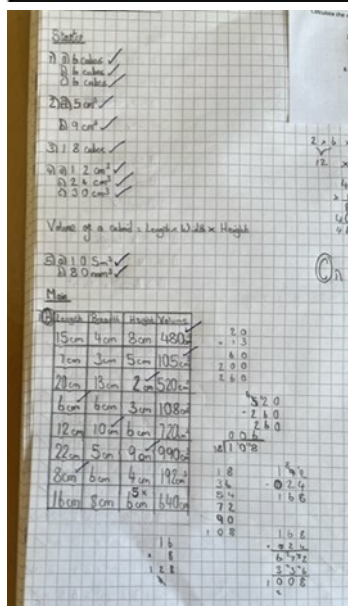 Starter
1) a) 6 cubes ✓
b) 6 cubes ✓
c) 6 cubes ✓
2) a) 5 cm³ ✓
b) 9 cm³ ✓
3) 18 cubes ✓
4) a) 12 cm³ ✓
b) 24 cm³ ✓
c) 30 cm³ ✓
Volume of a cuboid = Length × Width × Height
5) a) 105 m³ ✓
b) 80 mm³ ✓
Main
Length Breadth Height Volume
15cm 4cm 8cm 480 ✓
7cm 3cm 5cm 105 ✓
20cm 13cm 2cm ✓ 520cm³
6cm ✓ 6cm 3cm 108
12cm 10 ✓ 6cm 720
22cm 5cm 9cm ✓ 990
8cm ✓ 6cm 4cm 192
16cm 8cm 5 640
20
× 13
60
200
260
520
- 260
260
006
18 108
18
36
54
72
90
108
192
- 024
168
168
1008
16
× 8
128
2 × 6 ×
12 ×